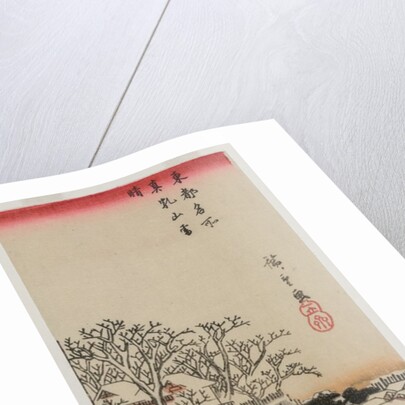 東都名所
真乳山雪
晴
廣重画